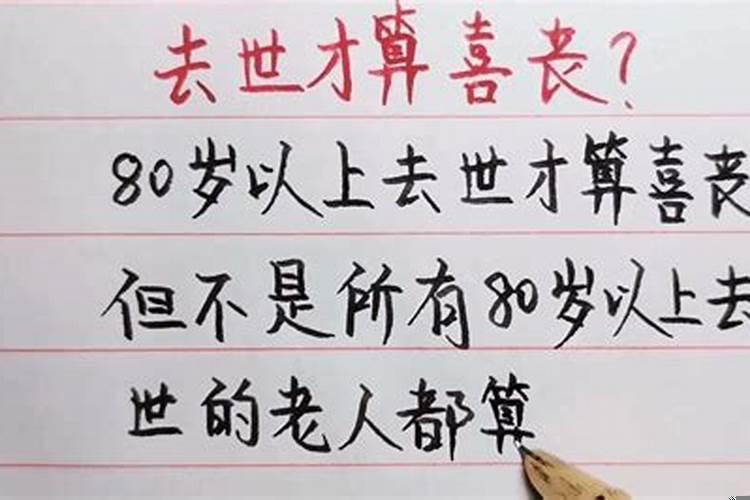 去世才算喜丧？
80岁以上去世才算喜丧
但不是所有80岁以上去
世的老人都算